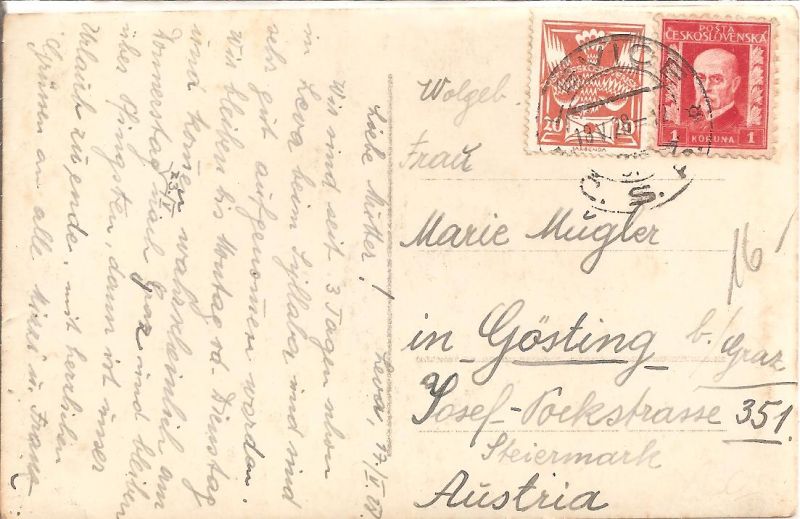 Liebe Mutter! Leva, 17/V 28.
Wir sind seit 3 Tagen schon
in Leva beim Syllaber und sind
sehr gut aufgenommen worden.
Wir bleiben bis Montag od. Dienstag
und kommen wahrscheinlich am
23./V.
Donnerstag nach Graz und bleiben
über Pfingsten, dann ist unser
Urlaub zu ende. mit herzlichen
Grüssen an alle Mizzi u. Franz
20
POŠTA
ČESKOSLOVENSKÁ
1 KORUNA 1
LEVICE
19.V.28
Wolgeb.
Frau
Marie Mugler
16
in Gösting b/ Graz
Josef-Pockstrasse 351.
Steiermark
Austria